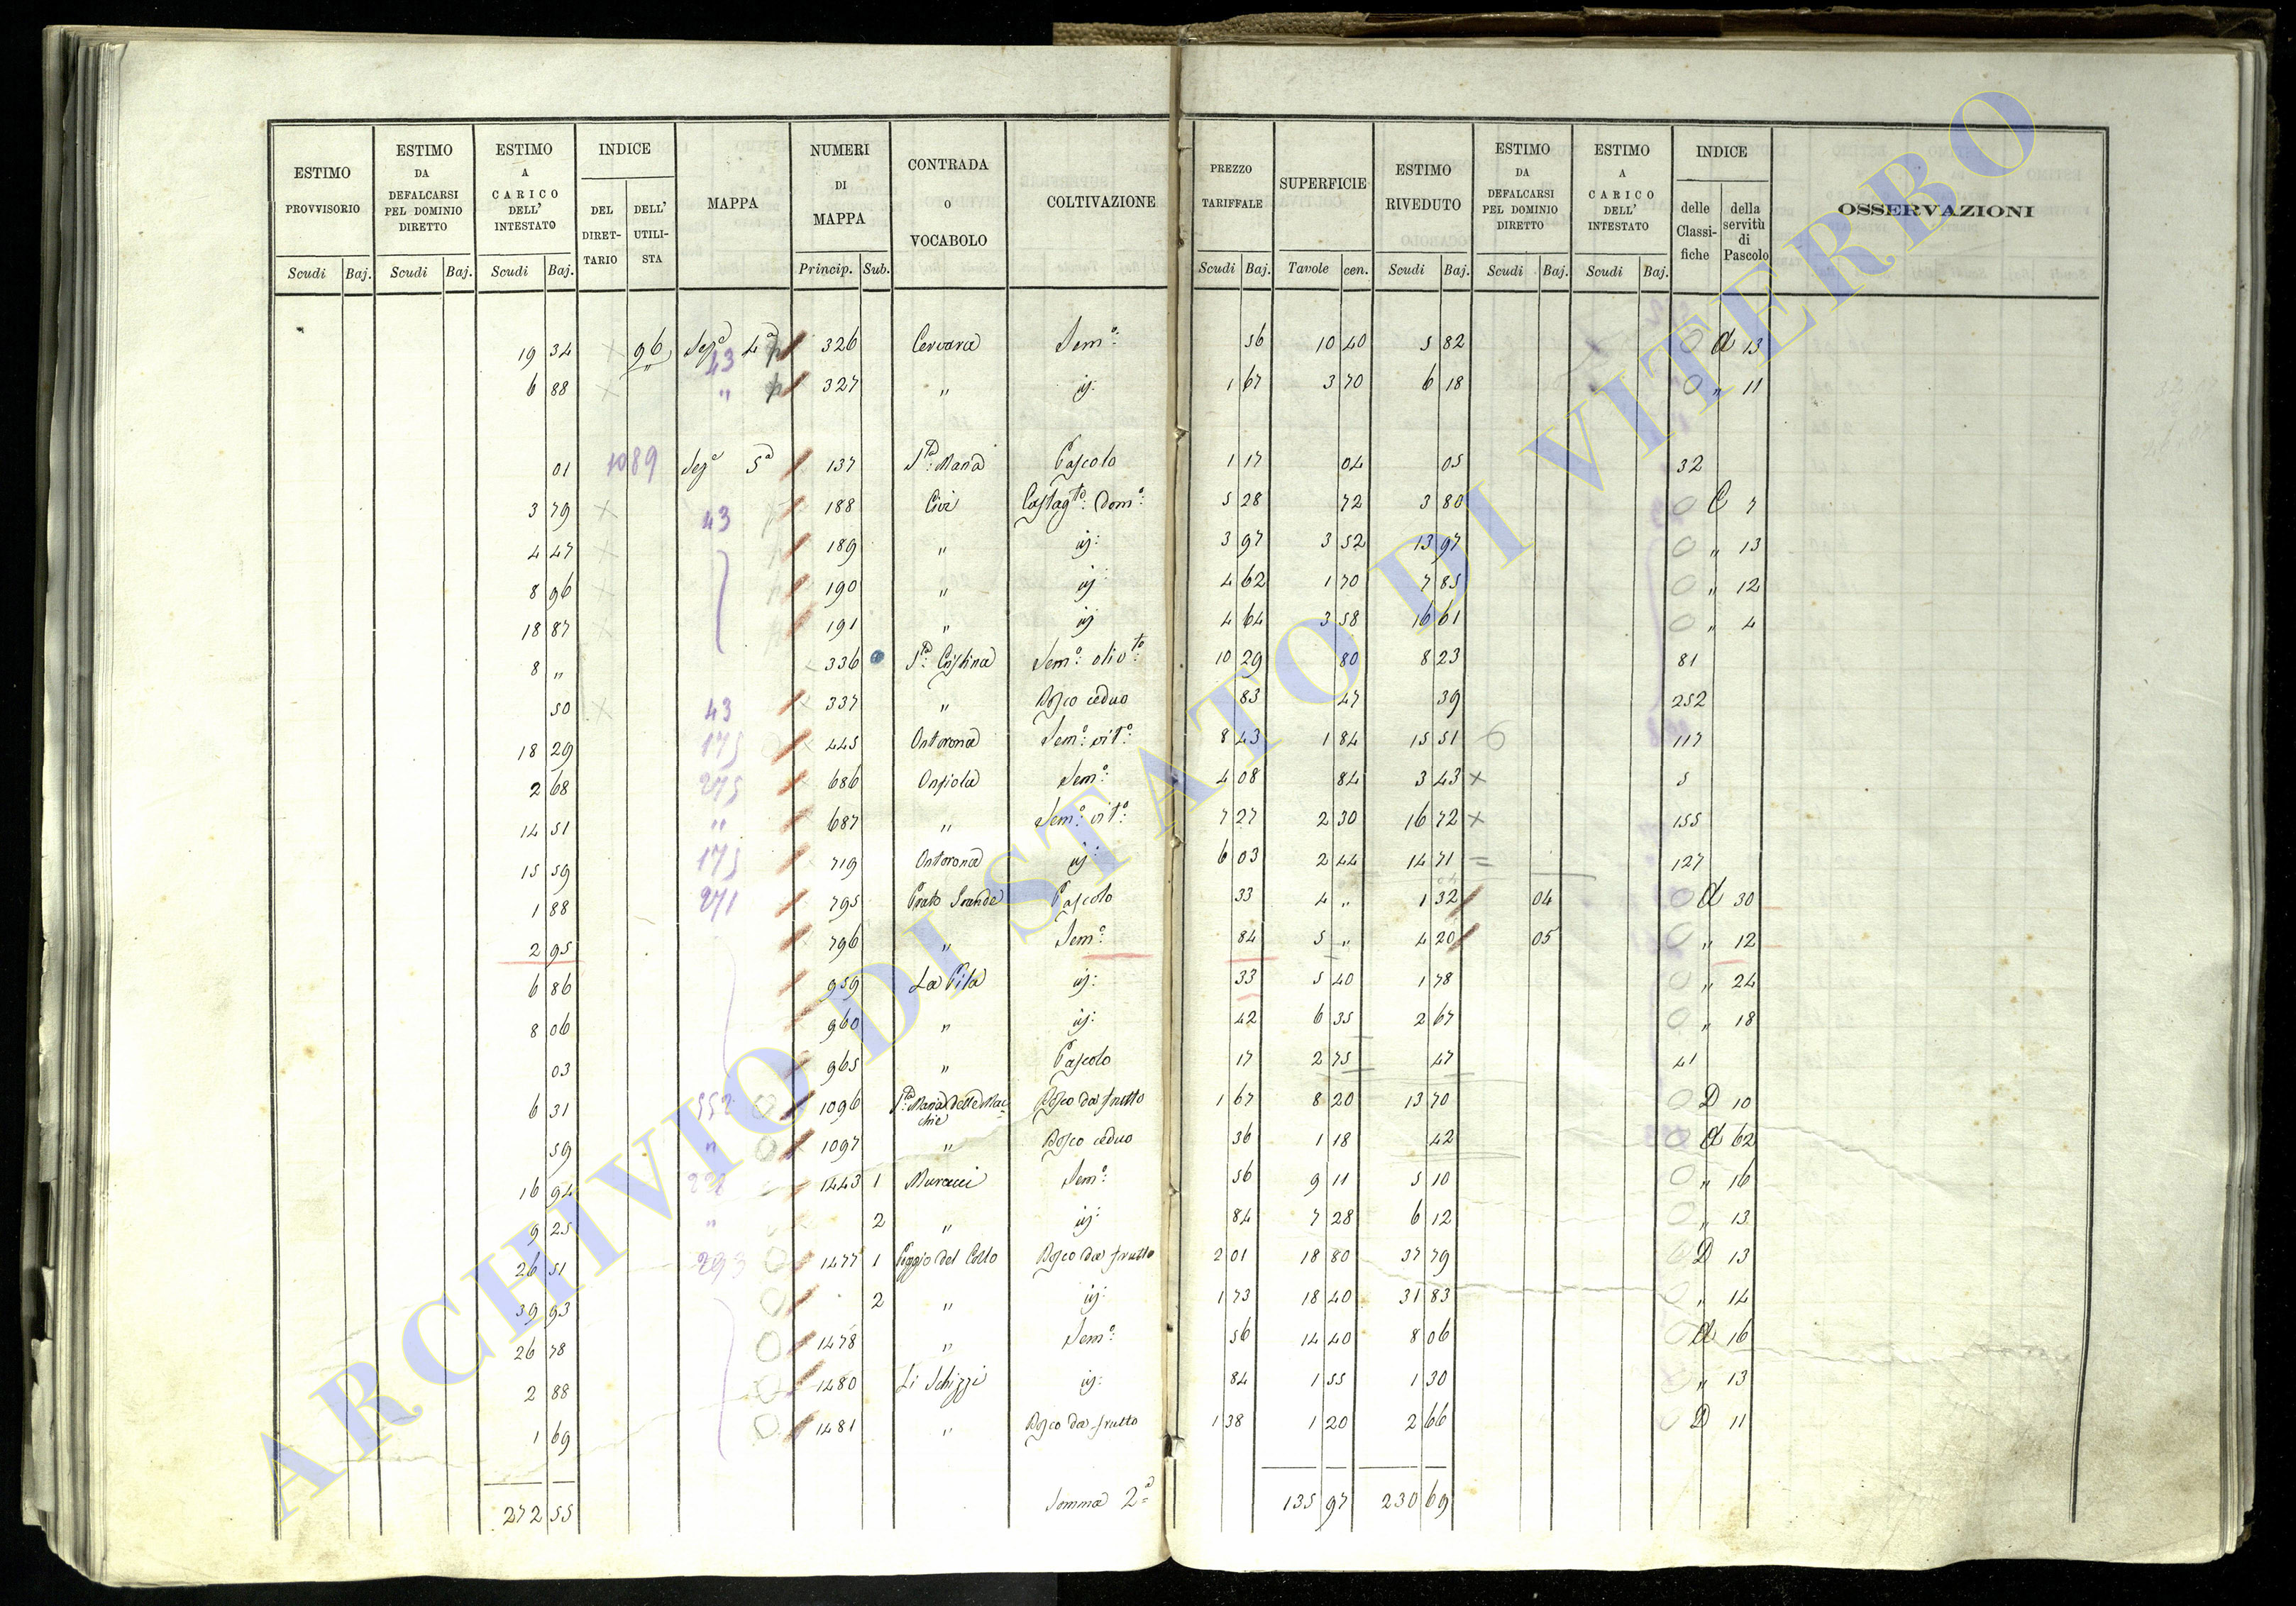 ESTIMO PROVVISORIO | ESTIMO DA DEFALCARSI PEL DOMINIO DIRETTO | ESTIMO A CARICO DELL' INTESTATO | INDICE DEL DIRETTARIO | DELL' UTILISTA | MAPPA | NUMERI DI MAPPA | CONTRADA O VOCABOLO | COLTIVAZIONE | PREZZO TARIFFALE | SUPERFICIE | ESTIMO RIVEDUTO | ESTIMO DA DEFALCARSI PEL DOMINIO DIRETTO | ESTIMO A CARICO DELL' INTESTATO | INDICE delle Classifiche | della servitù di Pascolo | OSSERVAZIONI
Scudi Baj. | Scudi Baj. | Scudi Baj. | Princip. Sub. | Scudi Baj. | Tavole cen. | Scudi Baj. | Scudi Baj. | Scudi Baj.
19 34 96 Sezª 4ª 43 326 Cervara Semº: 56 10 40 5 82 a 13
6 88 " 327 " id: 1 67 3 70 6 18 " 11
01 1089 Sezª 5ª 137 Sta: Maria Pascolo 1 17 04 05 32
3 79 43 188 Civi Castagto: Domº: 5 28 72 3 80 C 7
4 47 189 " id: 3 97 3 52 13 97 " 13
8 96 190 " id 4 62 1 70 7 85 " 12
18 87 191 " id 4 64 3 58 16 61 " 4
8 " 336 Sta: Cristina Semº: olivto: 10 29 80 8 23 81
50 43 337 " Bosco ceduo 83 47 39 252
18 29 175 445 Ontorona Semº: vitº: 8 43 1 84 15 51 117
2 68 275 686 Onsiola Semº: 4 08 84 3 43 5
14 51 " 687 " Semº: vitº: 7 27 2 30 16 72 155
15 59 175 719 Ontorona id: 6 03 2 44 14 71 127
1 88 271 795 Prato Grande Pascolo 33 4 " 1 32 04 a 30
2 95 796 " Semº: 84 5 " 4 20 05 " 12
6 86 959 La Pila id: 33 5 40 1 78 " 24
8 06 960 " id: 42 6 35 2 67 " 18
03 965 " Pascolo 17 2 75 47 41
6 31 552 1096 Sta: Maria delle Macchie Bosco da frutto 1 67 8 20 13 70 D 10
59 " 1097 " Bosco ceduo 36 1 18 42 a 62
16 94 1443 1 Muracci Semº: 56 9 11 5 10 " 16
9 25 " 2 " id: 84 7 28 6 12 " 13
26 51 293 1477 1 Poggio del Collo Bosco da frutto 2 01 18 80 37 79 D 13
39 93 2 " id: 1 73 18 40 31 83 " 14
26 78 1478 " Semº: 56 14 40 8 06 a 16
2 88 1480 Li Schizzi id: 84 1 55 1 30 " 13
1 69 1481 " Bosco da frutto 1 38 1 20 2 66 D 11
272 55 Somma 2ª 135 97 230 69
ARCHIVIO DI STATO DI VITERBO